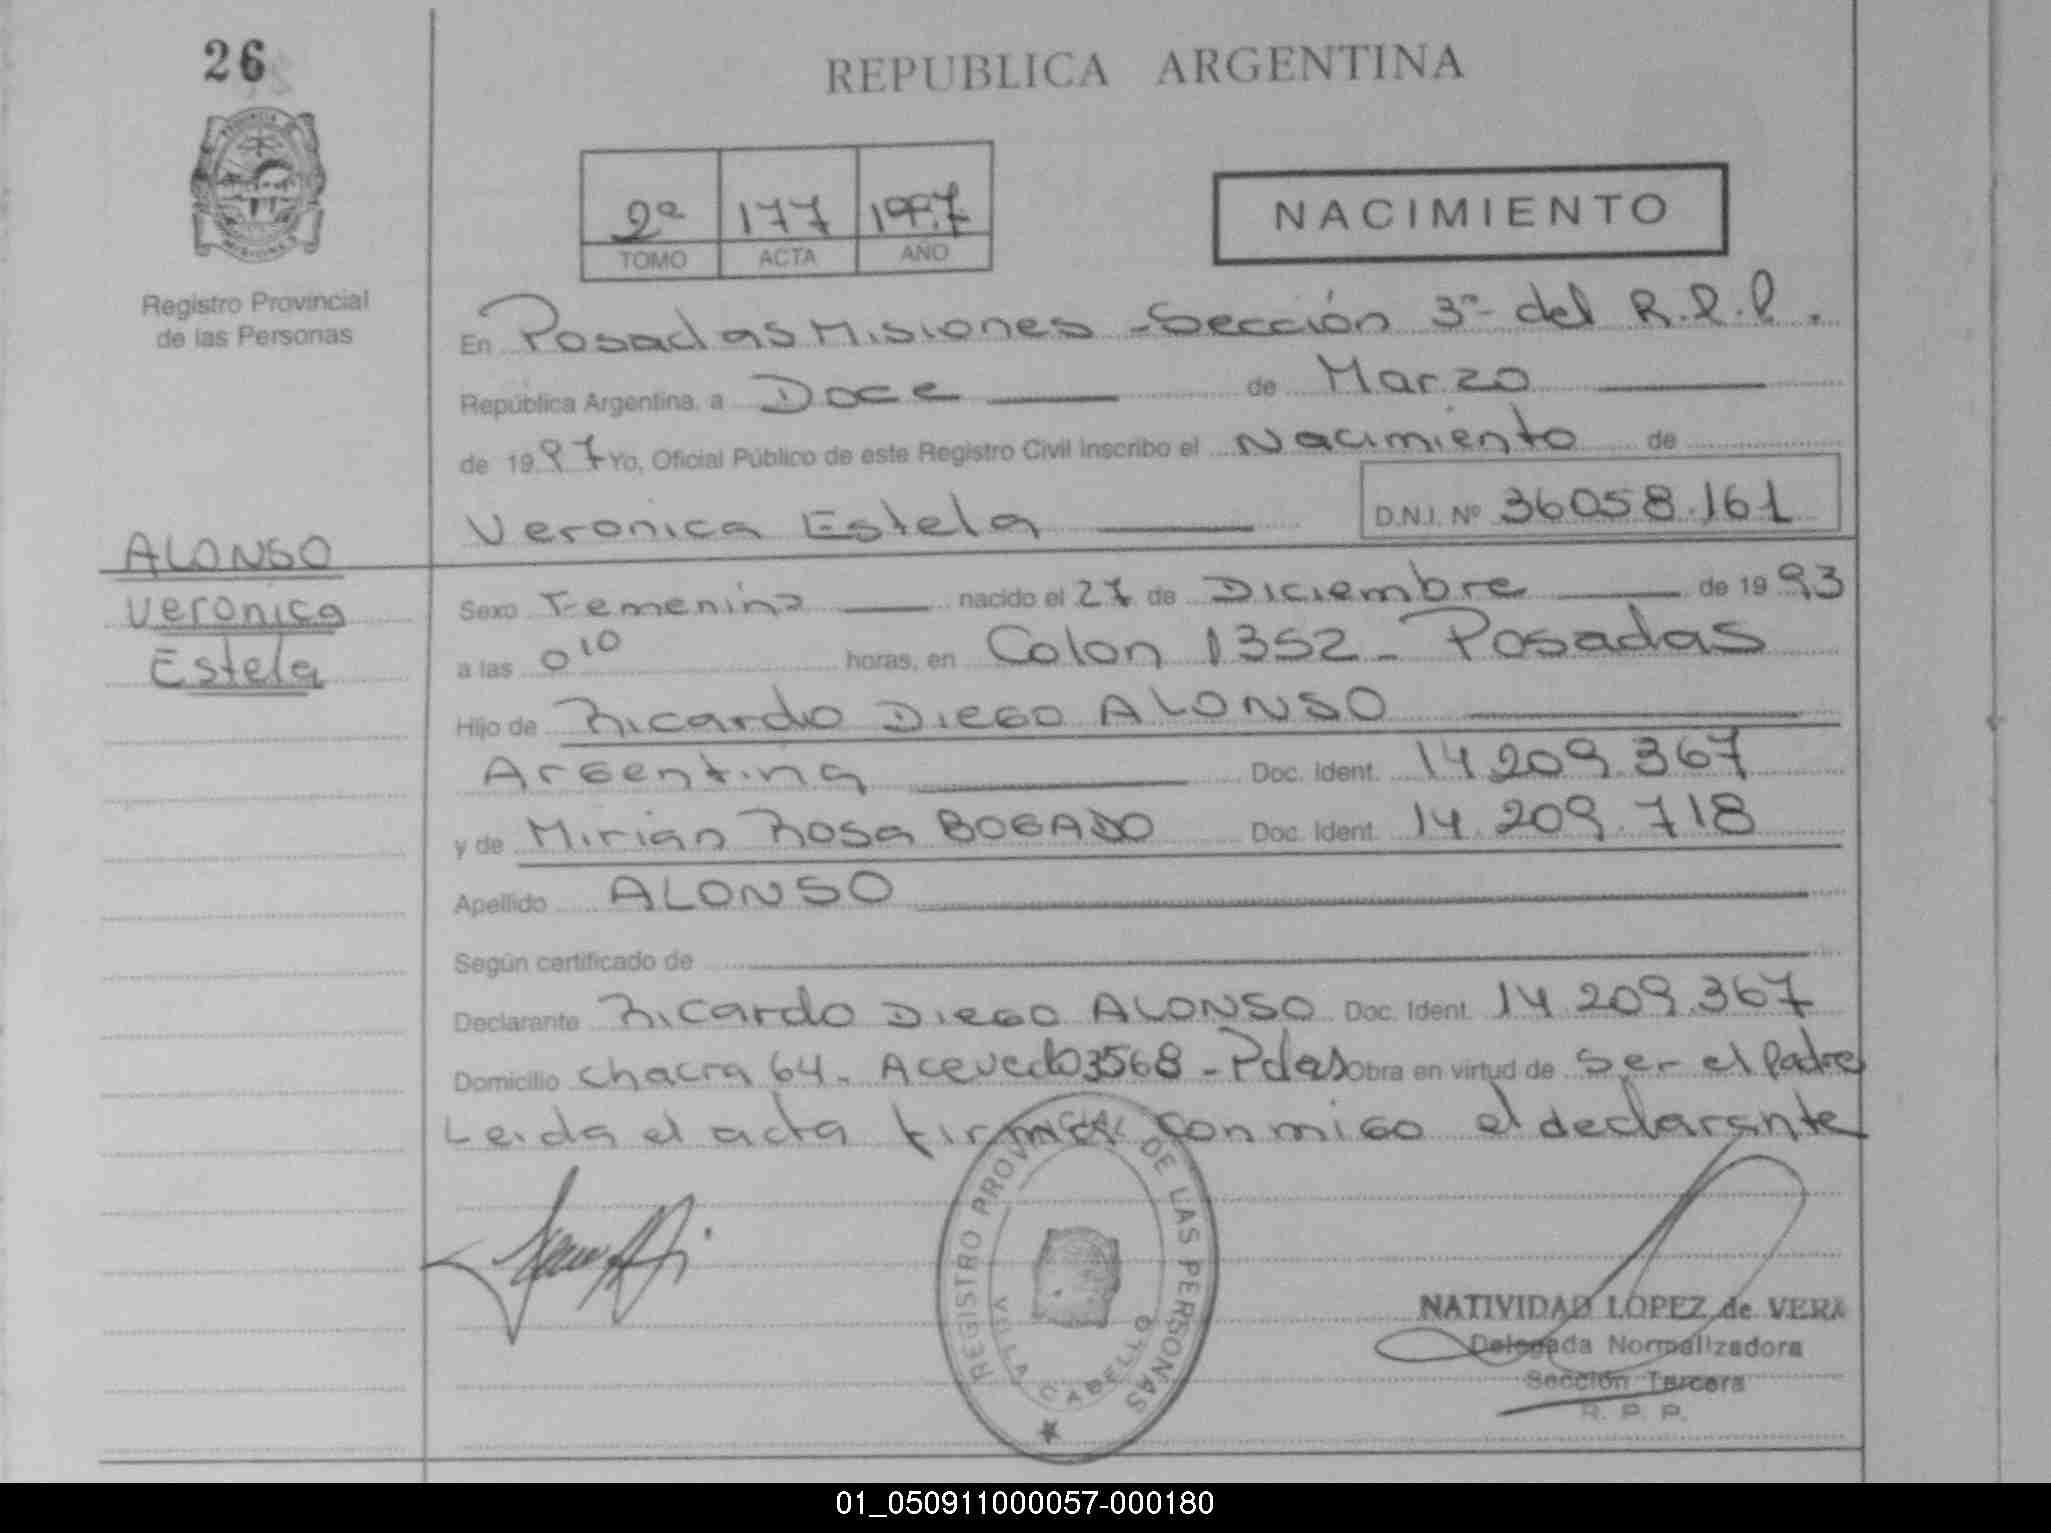 26
REPUBLICA ARGENTINA
Registro Provincial
de las Personas
2º 177 1997
TOMO ACTA AÑO
NACIMIENTO
En Posadas Misiones - Sección 3ª del R.P.P.
República Argentina, a Doce de Marzo
de 1997 Yo, Oficial Público de este Registro Civil inscribo el Nacimiento de
Veronica Estela D.N.I. Nº 36058.161
ALONSO
Veronica
Estela
Sexo Femenino nacido el 27 de Diciembre de 1993
a las 0 10 horas, en Colon 1352 - Posadas
Hijo de Ricardo Diego ALONSO
Argentina Doc. Ident. 14.209.367
y de Mirian Rosa BOGADO Doc. Ident. 14.209.718
Apellido ALONSO
Según certificado de
Declarante Ricardo Diego ALONSO Doc. Ident. 14.209.367
Domicilio chacra 64. Acevedo 3568 - Pdas Obra en virtud de ser el Padre
Leida el acta firma conmigo el declarante
REGISTRO PROVINCIAL DE LAS PERSONAS
VILLA CABELLO
NATIVIDAD LOPEZ de VERA
Delegada Normalizadora
Sección Tercera
R. P. P.
01_050911000057-000180